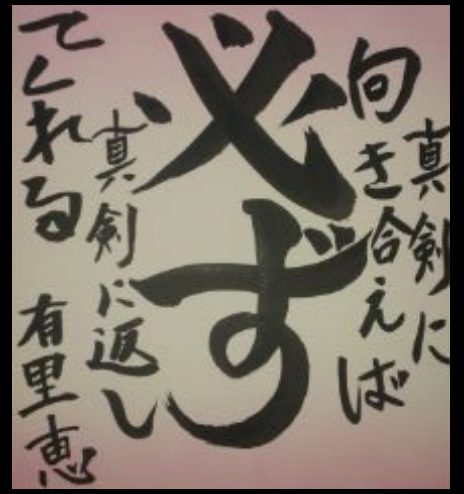 真剣に
向き合えば
必ず
真剣に返し
てくれる
有里恵